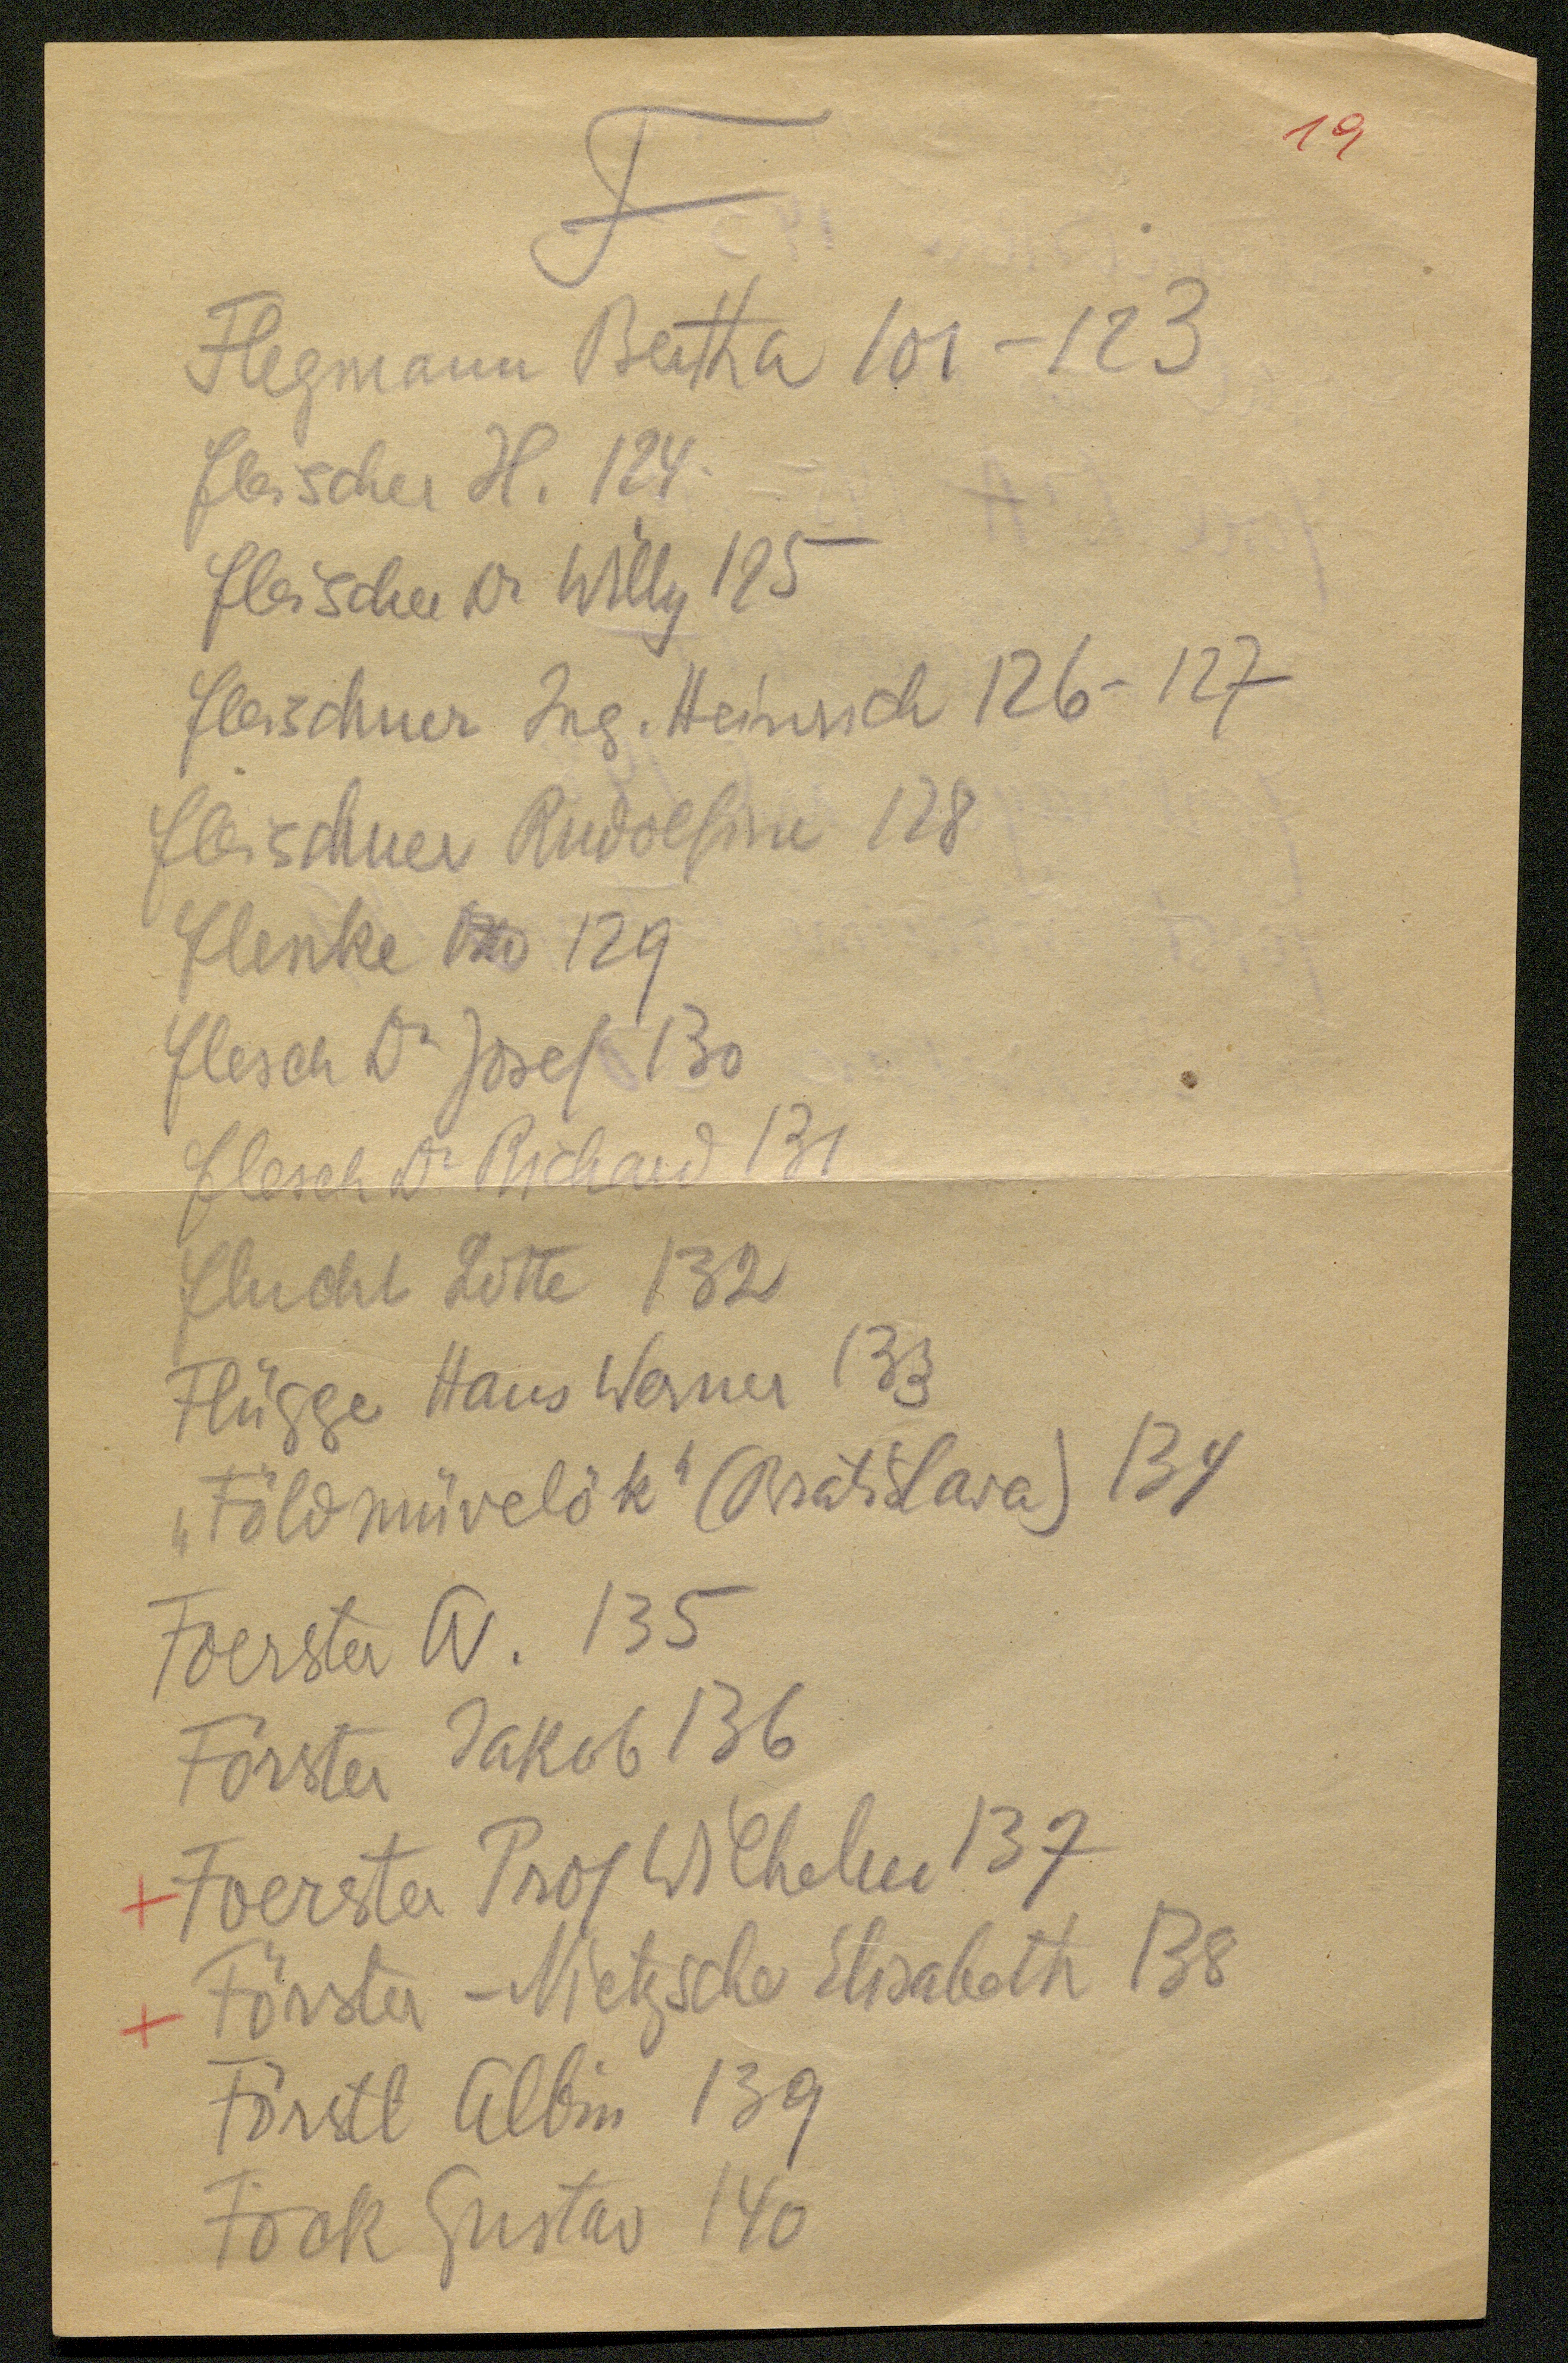 19
F
Flegmann Bertha 101-123
Fleischer H. 124
Fleischer Dr Willy 125
Fleischner Ing. Heinrich 126-127
Fleischner Rudolfine 128
Flenke Otto 129
Flesch Dr Josef 130
Flesch Dr Richard 131
Flucht Lotte 132
Flügge Hans Werner 133
„Földmüvelök" (Bratislava) 134
Foerster A. 135
Förster Jakob 136
+ Foerster Prof Wilhelm 137
+ Förster-Nietzsche Elisabeth 138
Förstl Albin 139
Fock Gustav 140